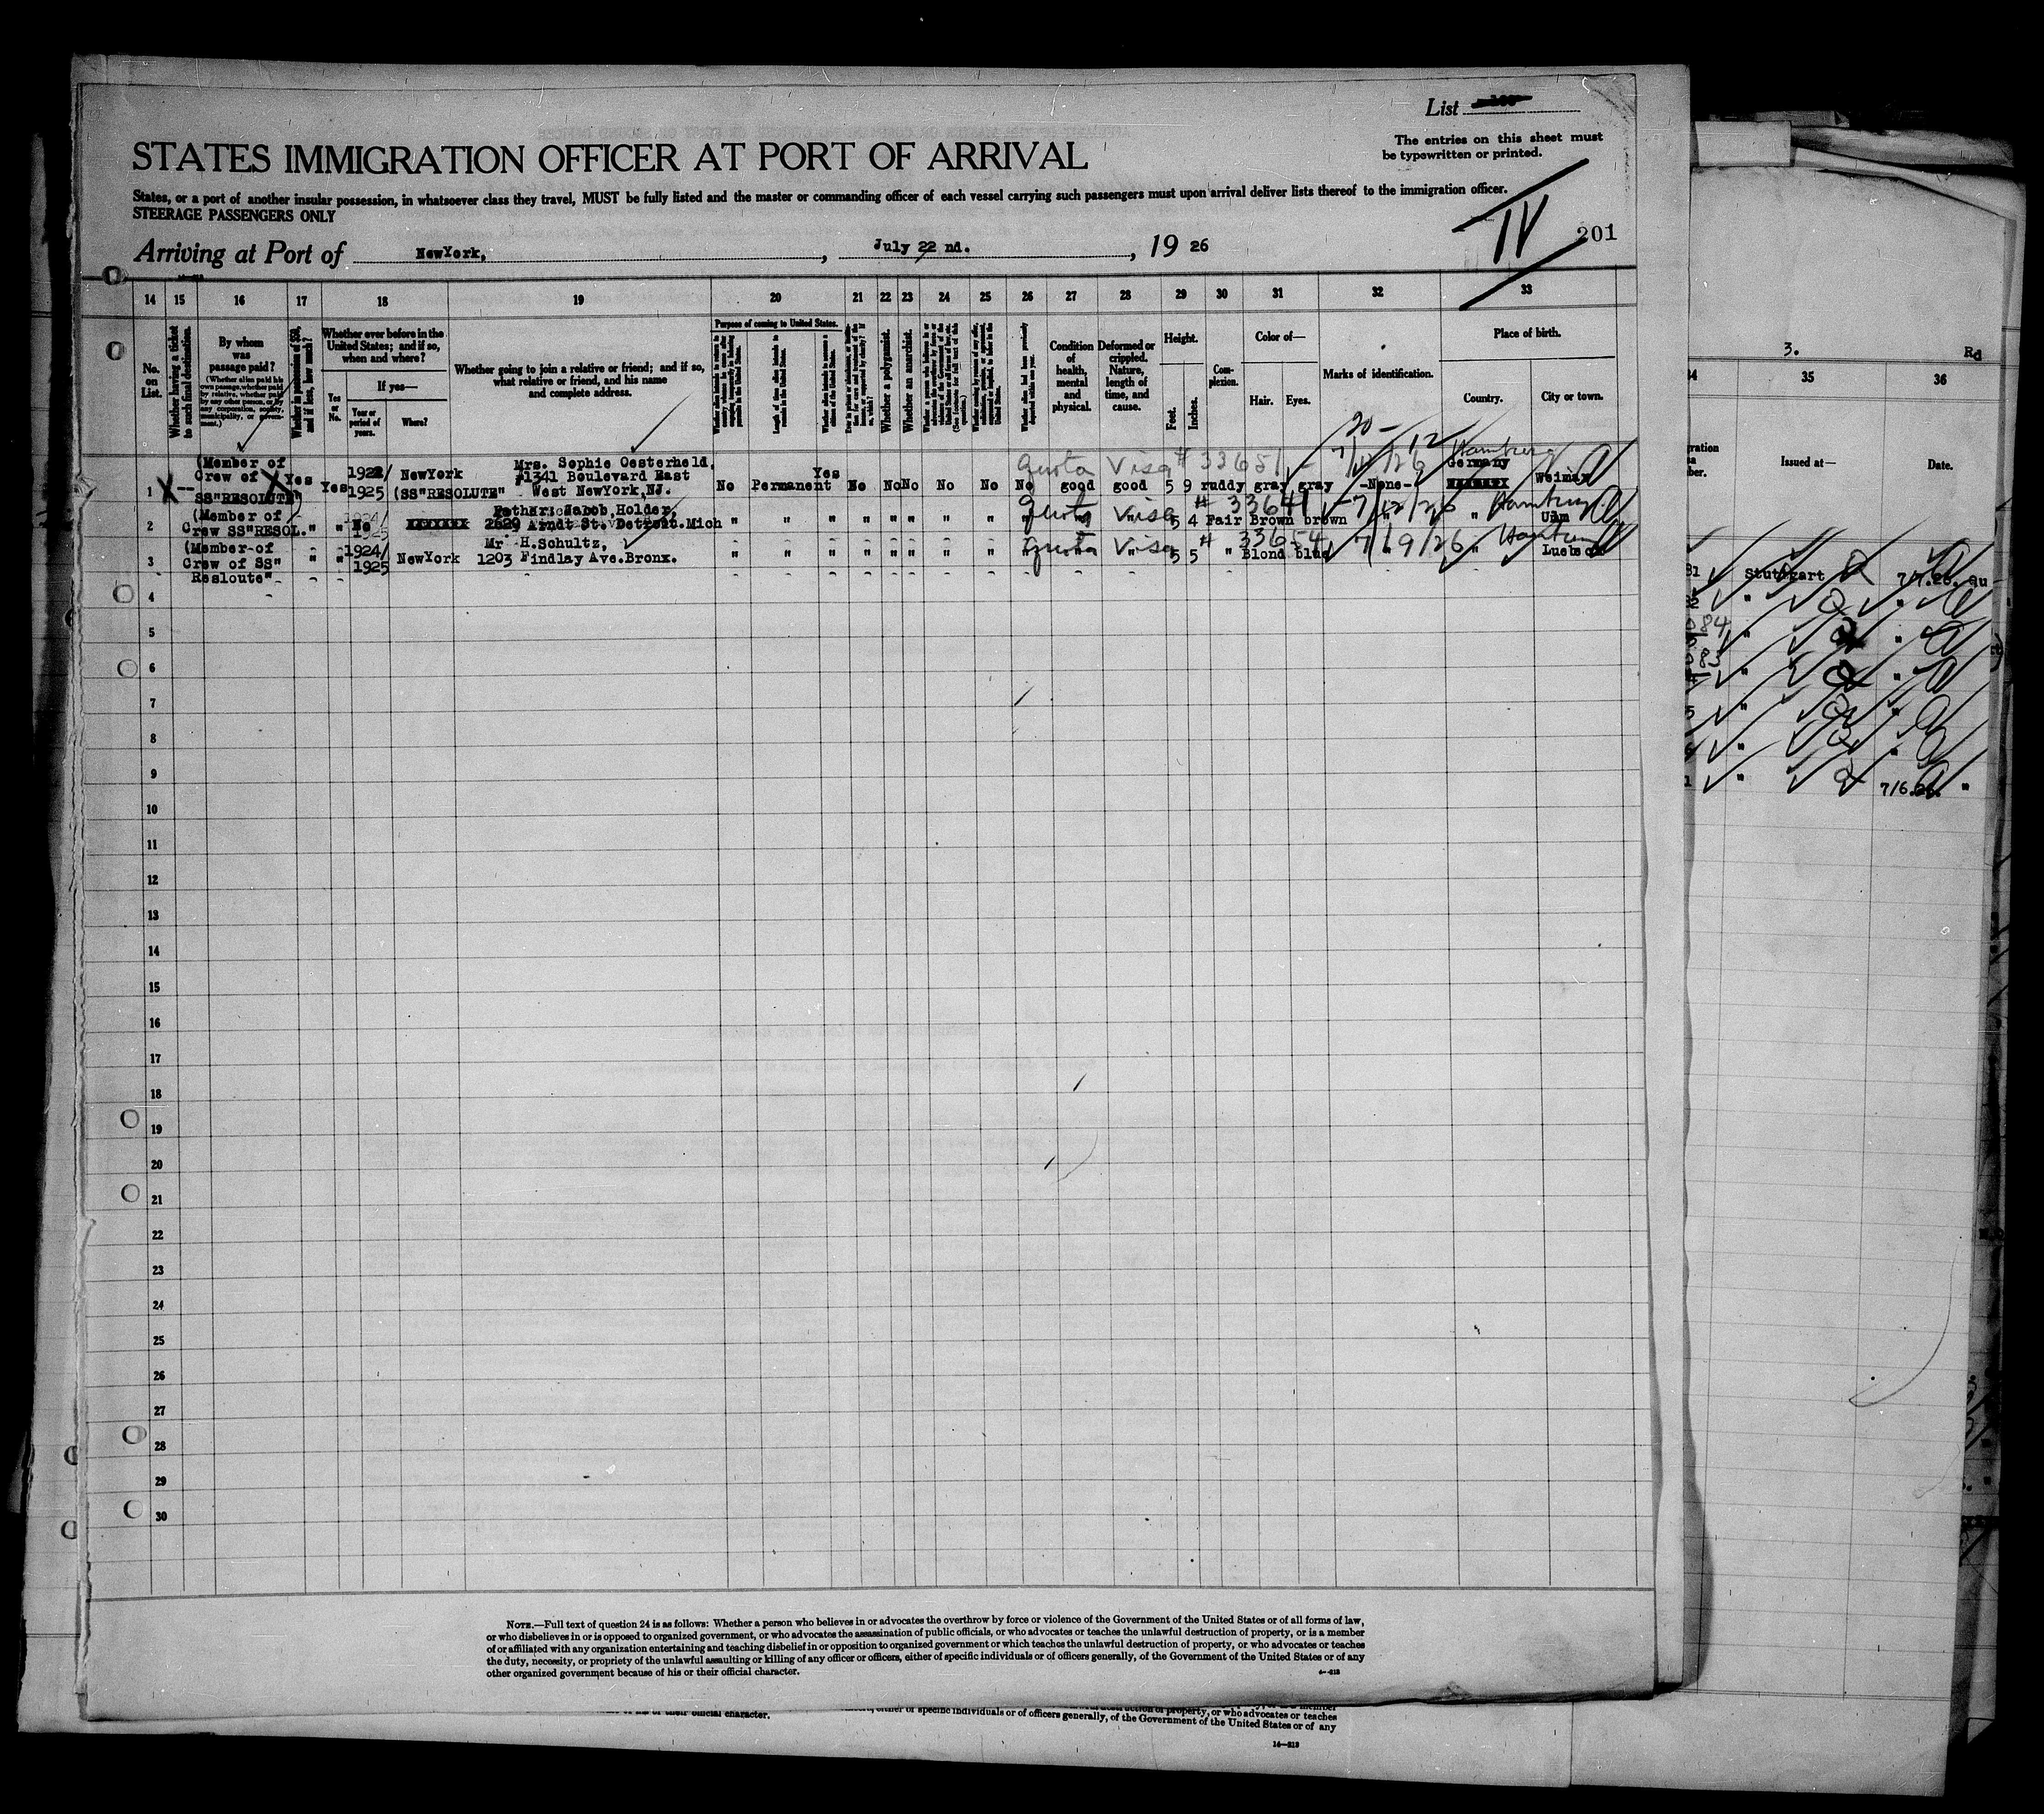 List
The entries on this sheet must
be typewritten or printed.
STATES IMMIGRATION OFFICER AT PORT OF ARRIVAL
States, or a port of another insular possession, in whatsoever class they travel, MUST be fully listed and the master or commanding officer of each vessel carrying such passengers must upon arrival deliver lists thereof to the immigration officer.
STEERAGE PASSENGERS ONLY
IV
201
Arriving at Port of NewYork, , July 22 nd. , 19 26
14 15 16 17 18 19 20 21 22 23 24 25 26 27 28 29 30 31 32 33
No. on List.
Whether having a ticket to such final destination.
By whom was passage paid?
(Whether alien paid his own passage, whether paid by relative, whether paid by any other person, or by any corporation, society, municipality, or government.)
Whether in possession of $50, and if less, how much?
Whether ever before in the United States; and if so, when and where?
Yes or No.
If yes—
Year or period of years.
Where?
Whether going to join a relative or friend; and if so, what relative or friend, and his name and complete address.
Purpose of coming to United States.
Length of time alien intends to remain in the United States.
Whether a polygamist.
Whether an anarchist.
Condition of health, mental and physical.
Deformed or crippled. Nature, length of time, and cause.
Height.
Feet.
Inches.
Complexion.
Color of—
Hair.
Eyes.
Marks of identification.
Place of birth.
Country.
City or town.
20-
12
Quota Visa # 33651 - 7/12/26 Hamburg
1 X -- (Member of Crew of SS"RESOLUTE" Yes Yes 1922/ 1925 NewYork (SS"RESOLUTE" Mrs. Sophie Oesterheld, #1341 Boulevard East West NewYork, NJ. No Permanent Yes No No No No No No good good 5 9 ruddy gray gray -None- Germany Weimar
Quota Visa # 33641 - 7/12/26 Hamburg
2 (Member of Crew SS"RESOL." " " No Father: Jacob, Holder, 2629 Arndt St. Detroit. Mich " " " " " " " " " " " 5 4 Fair Brown brown " " Ulm
Quota Visa # 33654 7/9/26 Hamburg
3 (Member-of Crew of SS" Resloute" " " 1924/ 1925 NewYork Mr. H.Schultz, 1203 Findlay Ave.Bronx. " " " " " " " " " " " 5 5 " Blond blue " " Luebeck
4
5
6
7
8
9
10
11
12
13
14
15
16
17
18
19
20
21
22
23
24
25
26
27
28
29
30
NOTE.—Full text of question 24 is as follows: Whether a person who believes in or advocates the overthrow by force or violence of the Government of the United States or of all forms of law,
or who disbelieves in or is opposed to organized government, or who advocates the assassination of public officials, or who advocates or teaches the unlawful destruction of property, or is a member
of or affiliated with any organization entertaining and teaching disbelief in or opposition to organized government or which teaches the unlawful destruction of property, or who advocates or teaches
the duty, necessity, or propriety of the unlawful assaulting or killing of any officer or officers, either of specific individuals or of officers generally, of the Government of the United States or of any
other organized government because of his or their official character.
their official character.
either of specific individuals or of officers generally, of the Government of the United States or of any
property, or who advocates or teaches
14—813
3. Rd
34 35 36
Issued at—
Date.
Stuttgart
7/6.26. "